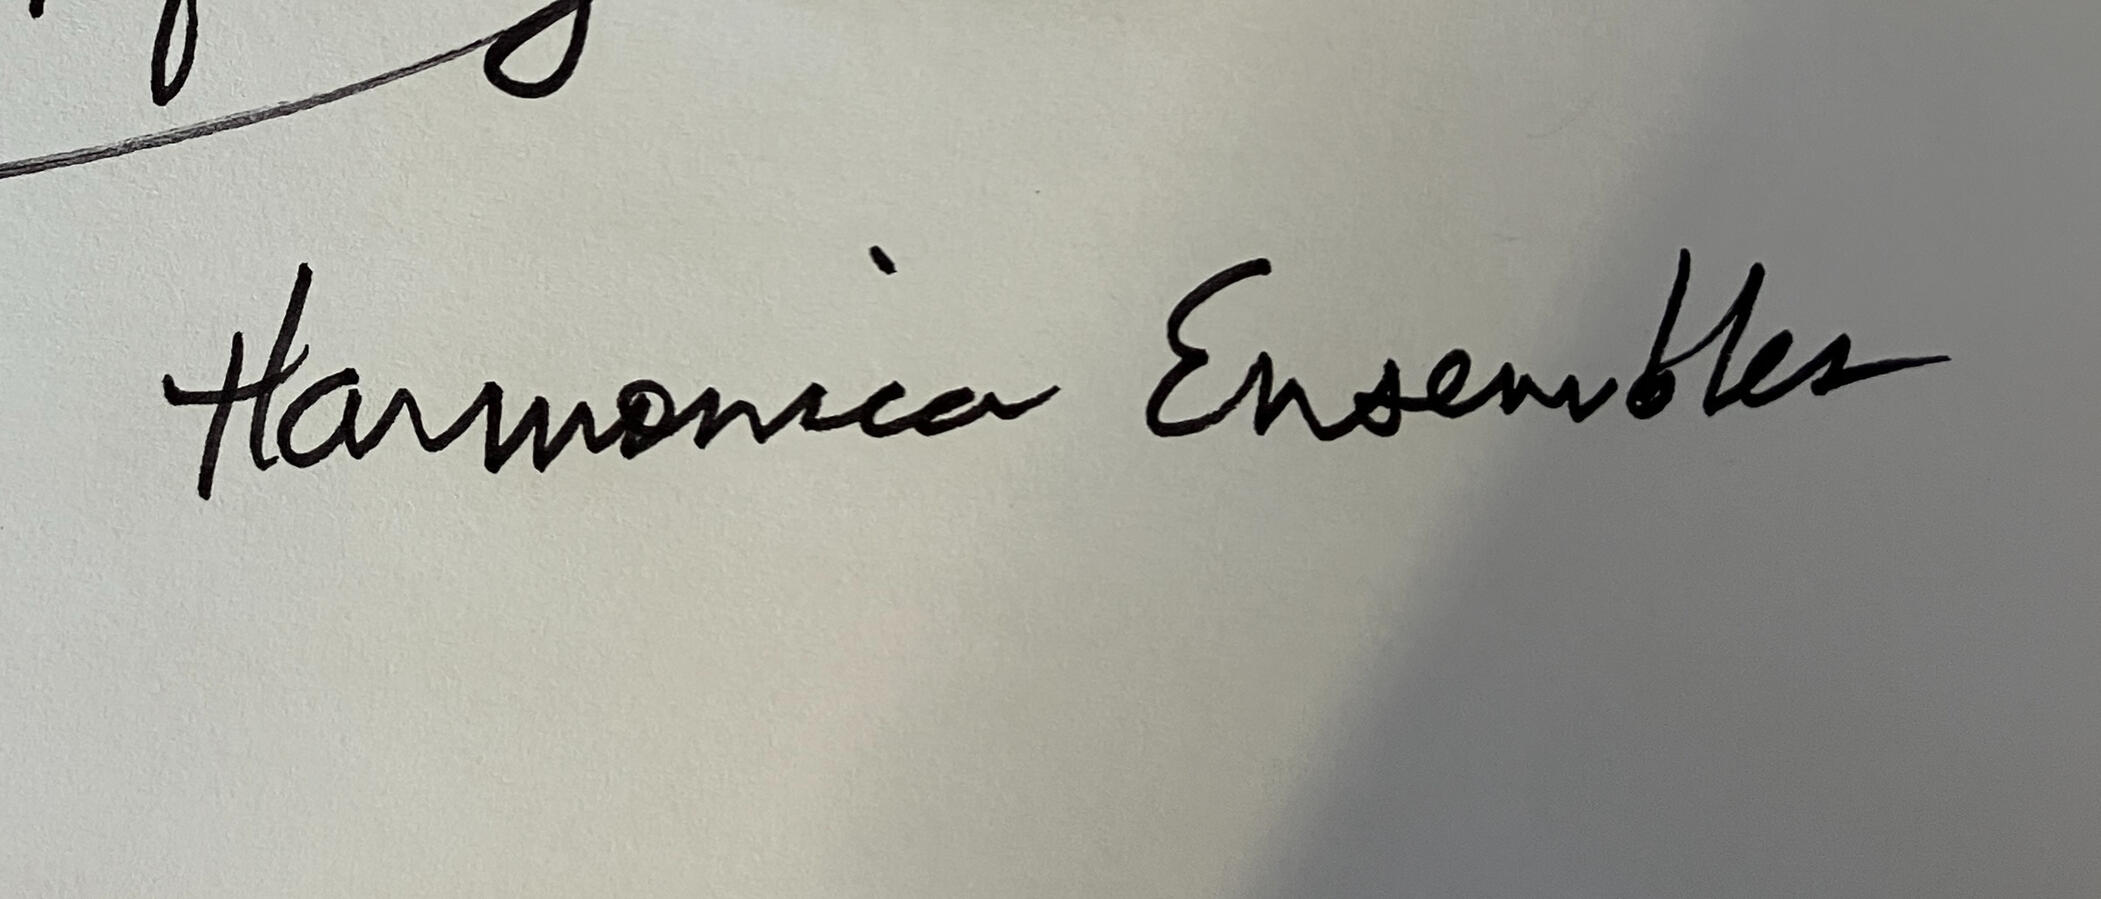 Harmonica Ensembles